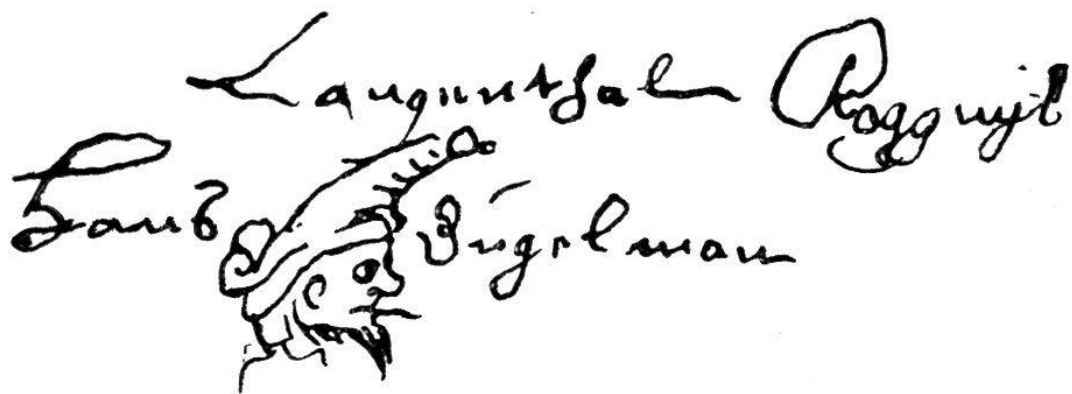 Langenthal Roggwyl
Hans Bügelman